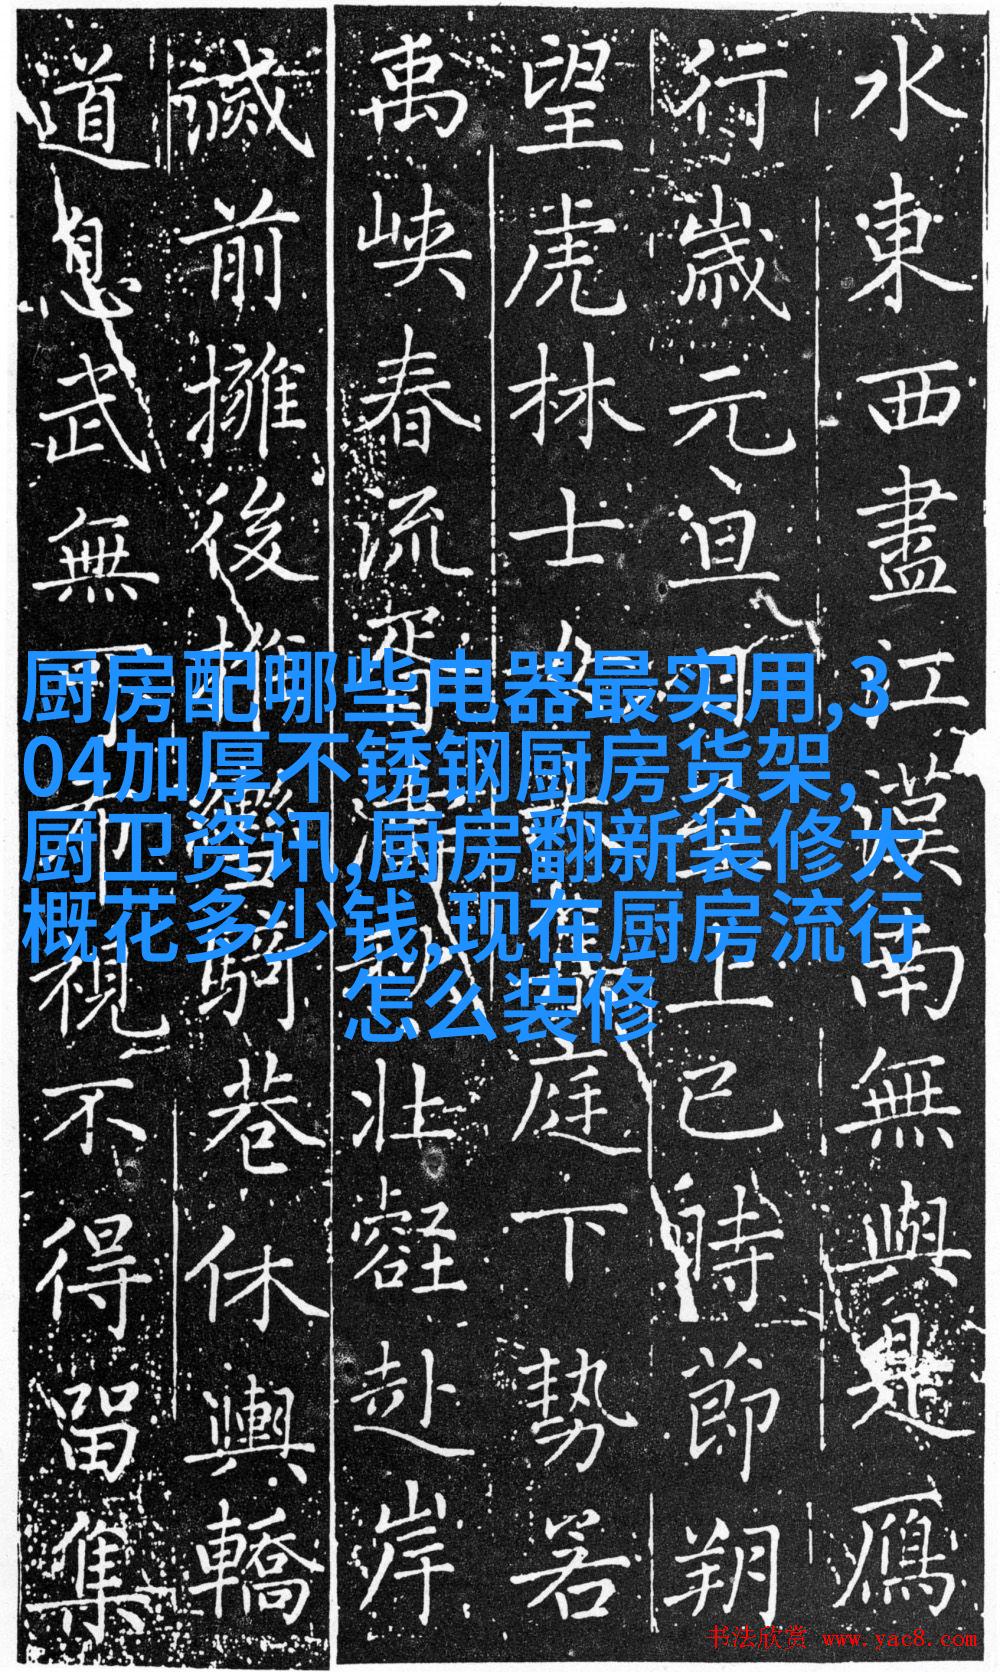 水東西盡江漢南無與是鴈
行歲元旦上巳時節朔
望虎林士庭下勢若
禹峽春流胥濤秋壯壑赴岸
誡前擁後騎巷休輿轎
道息武無視不得留集
厨房配哪些电器最实用,3
04加厚不锈钢厨房货架,
厨卫资讯,厨房翻新装修大
概花多少钱,现在厨房流行
怎么装修
书法欣赏 www.yac8.com